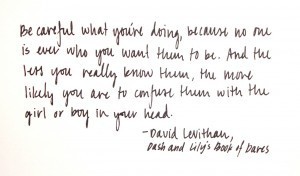 Be careful what you're doing, because no one
is ever who you want them to be. And the
less you really know them, the more
likely you are to confuse them with the
girl or boy in your head.
-David Levithan,
Dash and Lily's Book of Dares